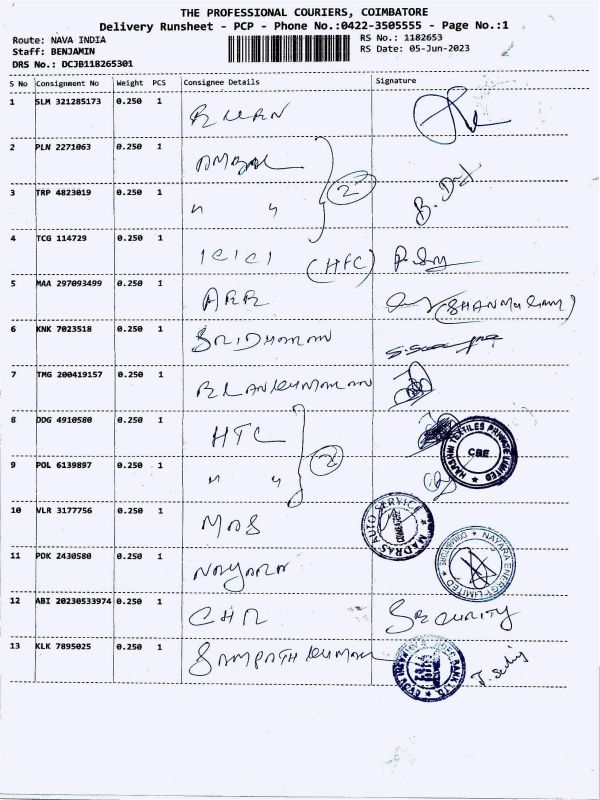 THE PROFESSIONAL COURIERS, COIMBATORE
Delivery Runsheet - PCP - Phone No.:0422-3505555 - Page No.:1
Route: NAVA INDIA
RS No.: 1182653
Staff: BENJAMIN
RS Date: 05-Jun-2023
DRS No.: DCJB118265301
S No Consignment No Weight PCS Consignee Details Signature
1 SLM 321285173 0.250 1
2 PLN 2271063 0.250 1
2
3 TRP 4823019 0.250 1 " "
4 TCG 114729 0.250 1 ICICI (HFC)
5 MAA 297093499 0.250 1 ARR (SHANMUGAM)
6 KNK 7023518 0.250 1 SRIDHARAN
7 TMG 200419157 0.250 1
8 DDG 4910580 0.250 1 HTL
HARSHNI TEXTILES PRIVATE LIMITED CBE
9 POL 6139897 0.250 1 " "
2
10 VLR 3177756 0.250 1 MAS
MADRAS AUTO SERVICE COIMBATORE
11 PDK 2430580 0.250 1 NAYARA
NAYARA ENERGY LIMITED COIMBATORE
12 ABI 20230533974 0.250 1 CHR SECURITY
13 KLK 7895025 0.250 1 SAMPATH KUMAR
BANK LTD.